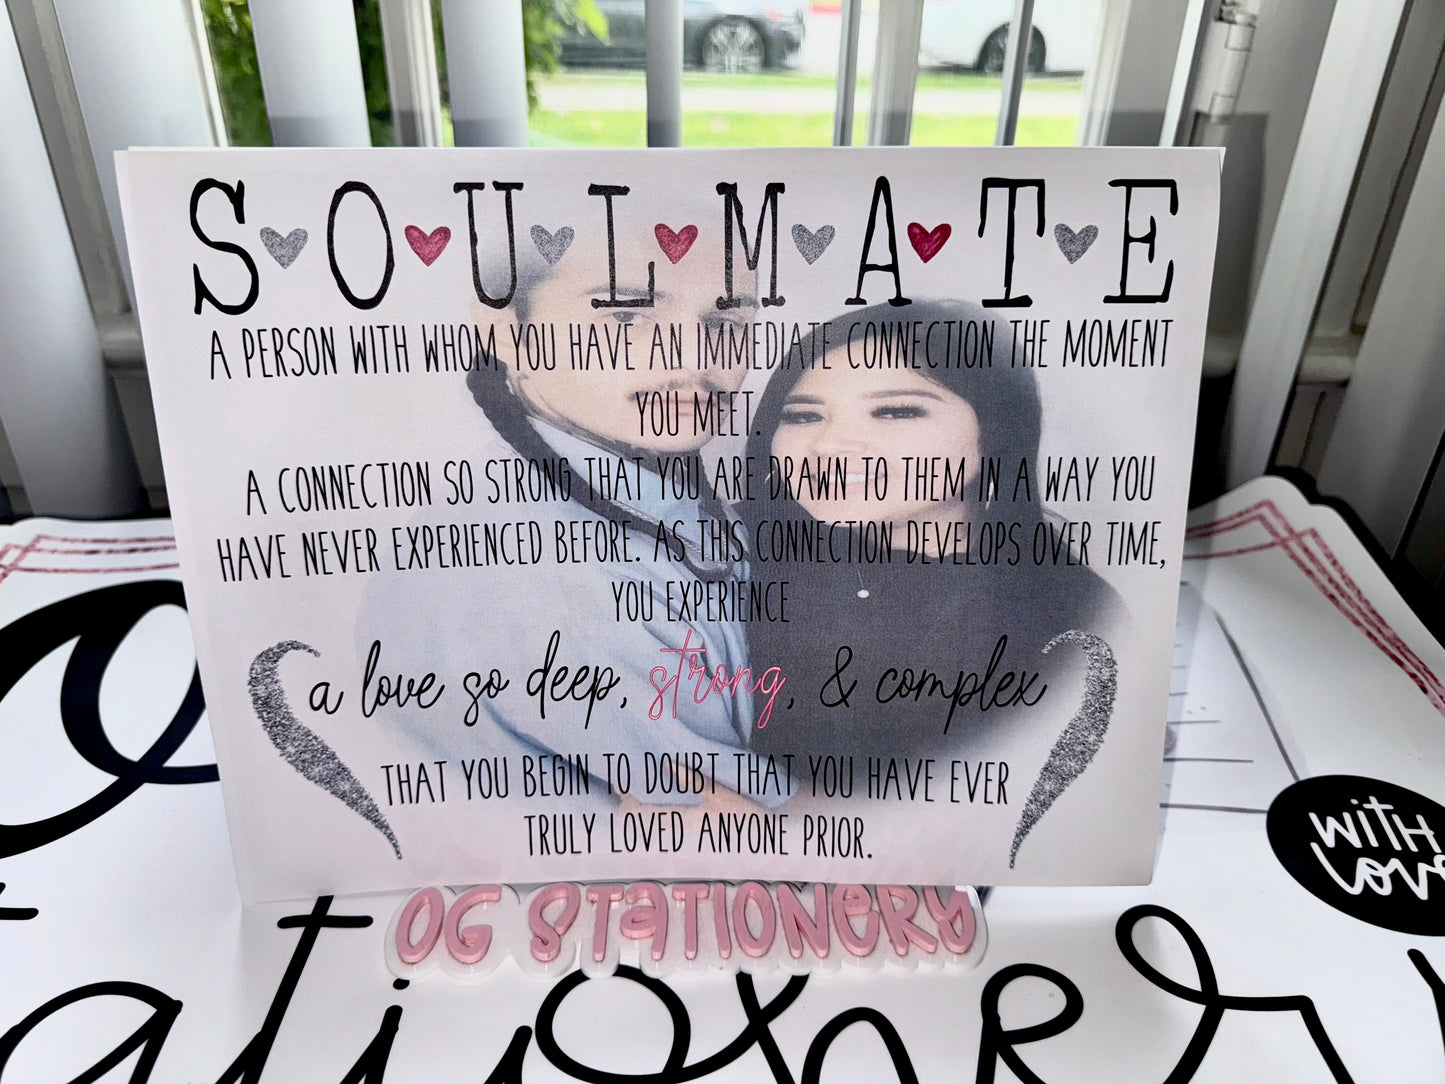 SOULMATE
A PERSON WITH WHOM YOU HAVE AN IMMEDIATE CONNECTION THE MOMENT
YOU MEET.
A CONNECTION SO STRONG THAT YOU ARE DRAWN TO THEM IN A WAY YOU
HAVE NEVER EXPERIENCED BEFORE. AS THIS CONNECTION DEVELOPS OVER TIME,
YOU EXPERIENCE
a love so deep, strong, & complex
THAT YOU BEGIN TO DOUBT THAT YOU HAVE EVER
TRULY LOVED ANYONE PRIOR.
OG STATIONERY
WITH
Love